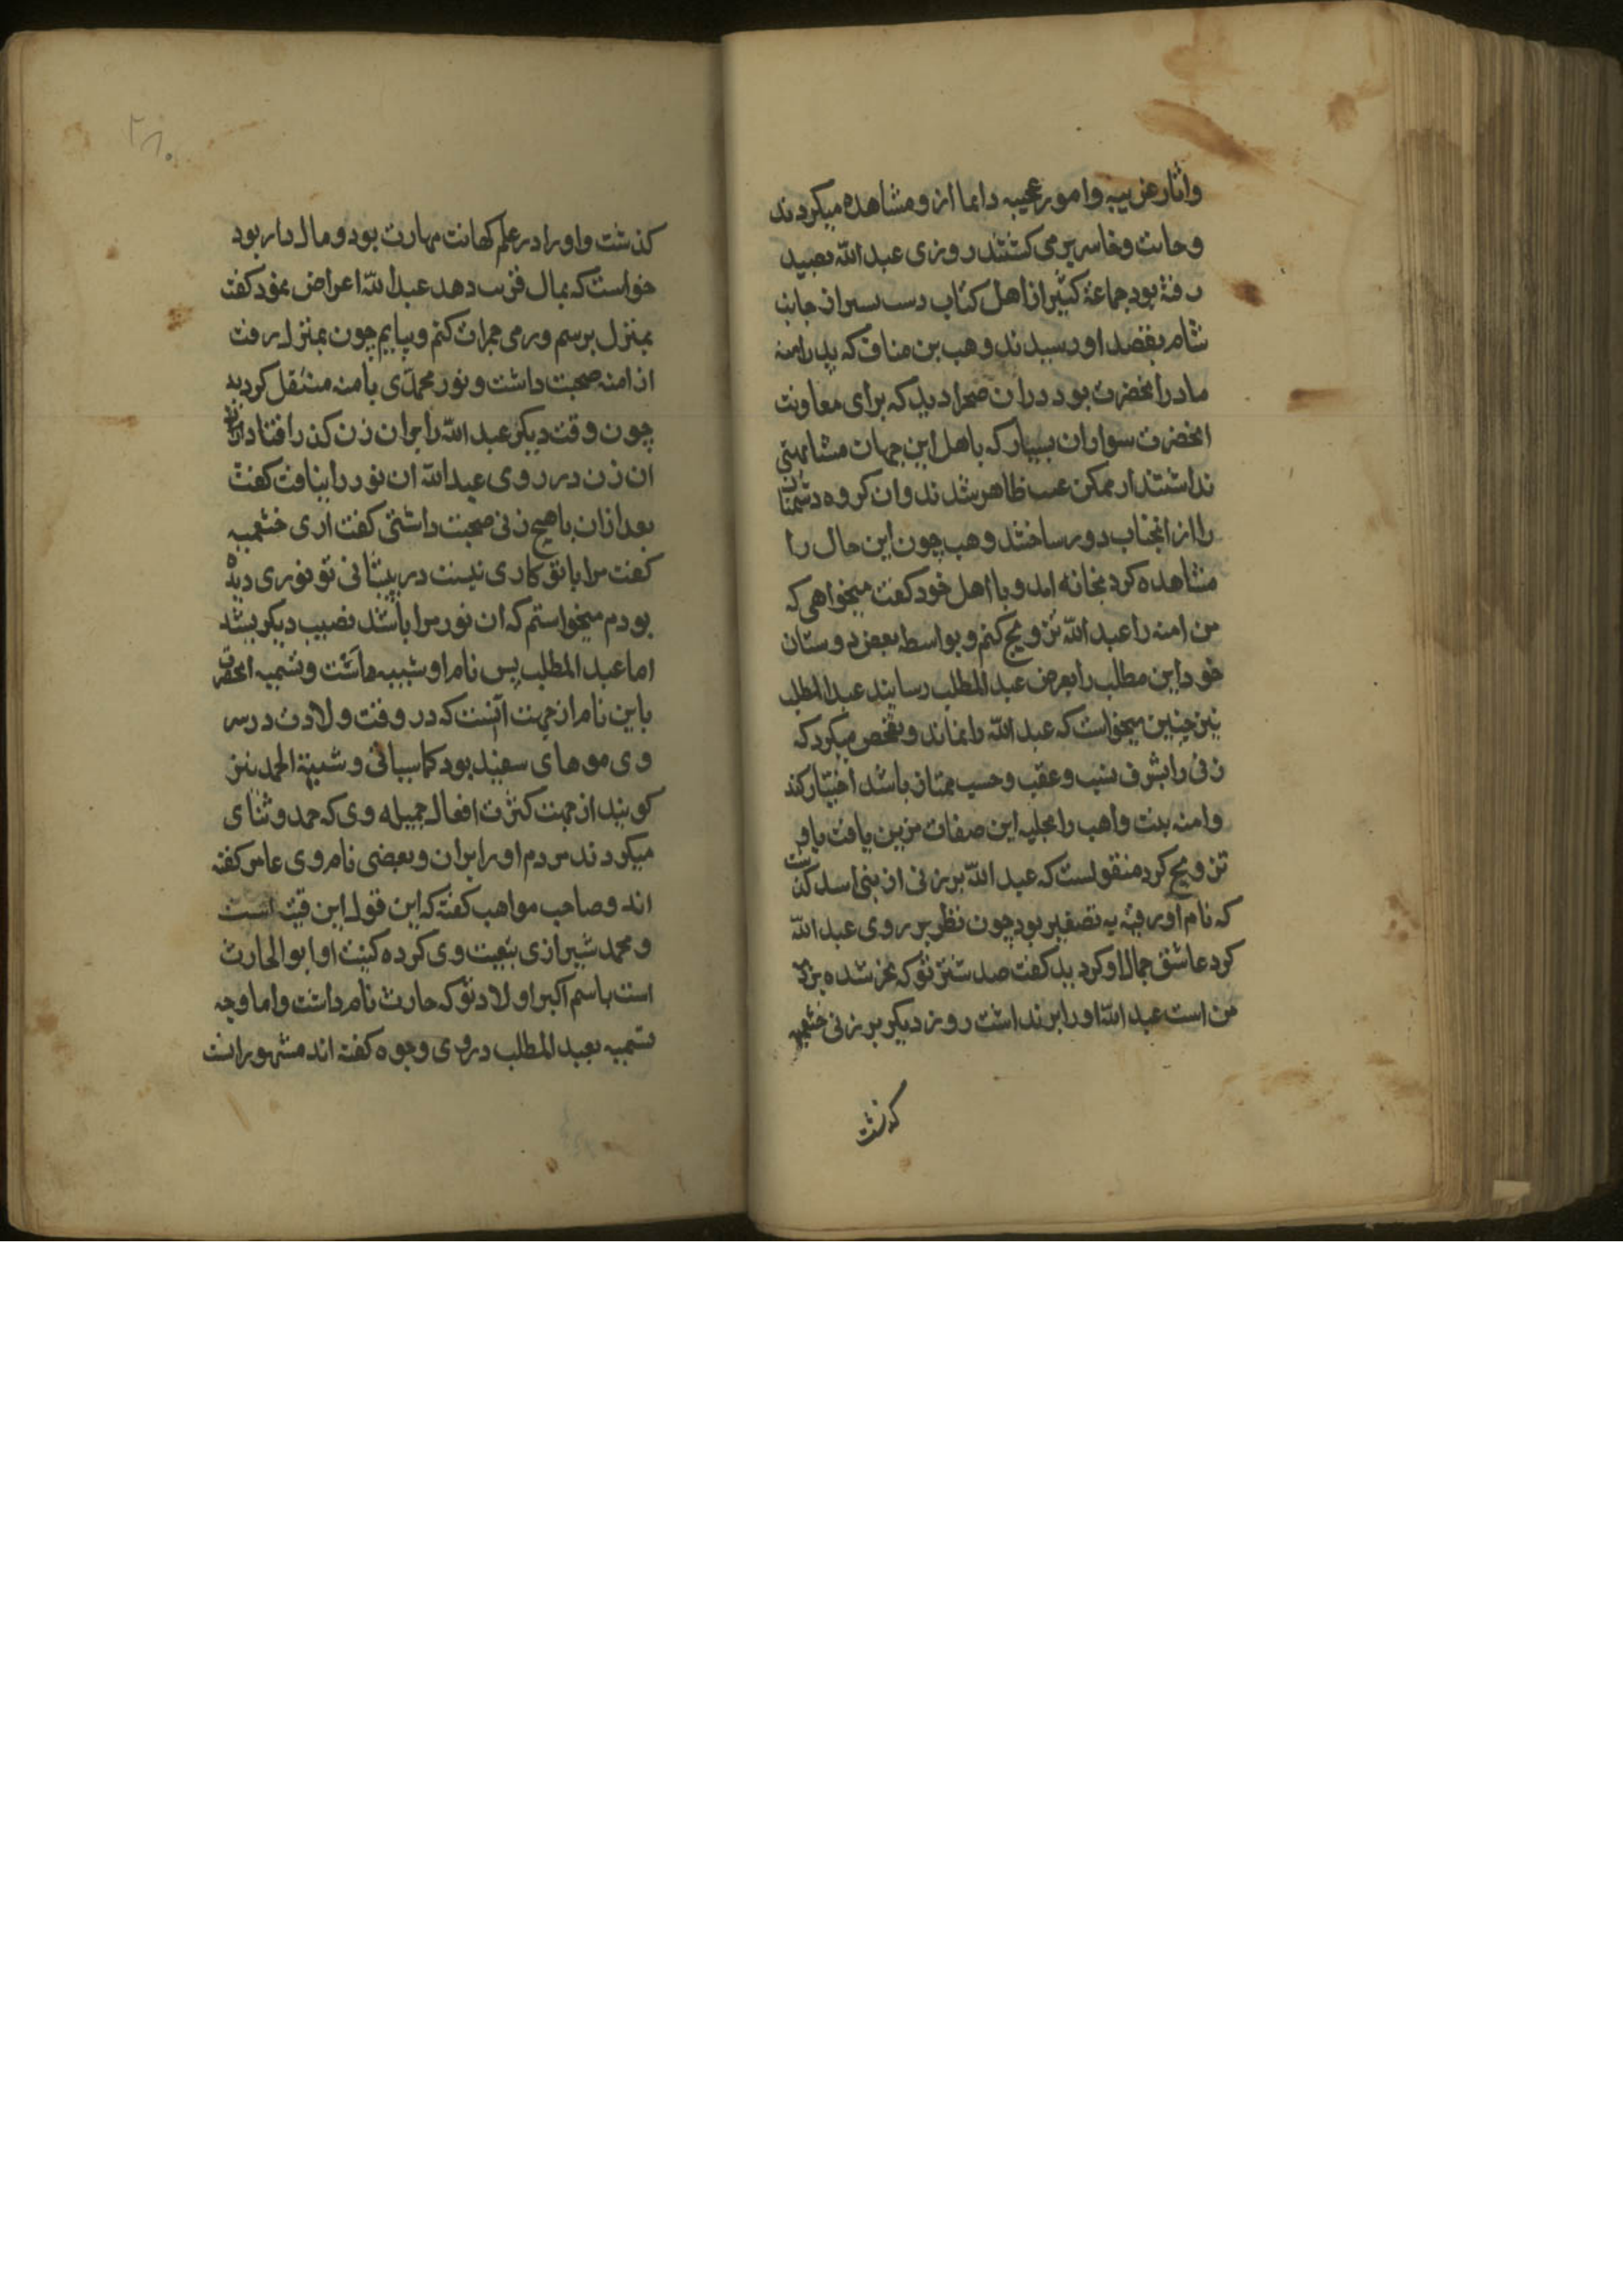 واثار غریبه وامور عجیبه دایما ازو مشاهده میکردند
وخایب وخاسر بر می کشتند روزی عبد الله بصید
رفته بود جماعة کثیر از اهل کتاب از جانب
شام بقصد او رسیدند وهب بن مناف که پدر امنه
مادر انحضرت بود دران صحرا دید که برای معاونت
انحضرت سواران بسیار که باهل این جهان مشابهتی
نداشتند از ممکن غیب ظاهر شدند وان کروه دشمنان
را از انجناب دور ساختند وهب چون این حال را
مشاهده کرد بخانه امد و با اهل خود کفت میخواهی که
من امنه را عبد الله تزویج کنم و بواسطه بعض دوستان
خود این مطلب را بعرض عبد المطلب رسانید عبد المطلب
نیز چنین میخواست که عبد الله را نماند و تفحص میکرد که
زنی را بشرف نسب وعقب وحسب ممتاز باشد اختیار کند
وامنه بنت واهب را بحلیه این صفات مزین یافت باو
تزویج کرد منقولست که عبد الله بر زنی از بنی اسد کذشت
که نام او رقیه به تصغیر بود چون نظر بر روی عبد الله
کرد عاشق جمال او کردید کفت صد شتر تو که نحر شده بر
من است عبد الله او را بر نداشت روز دیکر بر زنی خثعمیه
کذشت
۲۸۰
کذشت واو را در علم کهانت مهارت بود ومال دار بود
خواست که بمال فریب دهد عبد الله اعراض نمود کفت
بمنزل برسم ورمی جمرات کنم وبیایم چون بمنزل رفت
از امنه صحبت داشت ونور محمدی بامنه منتقل کردید
چون وقت دیکر عبد الله را بران زن کذر افتاد
ان زن در روی عبد الله ان نور را نیافت کفت
بعد ازان باهیچ زنی صحبت داشتی کفت اری خثعمیه
کفت مرا باتو کاری نیست در پیشانی تو نوری دیده
بودم میخواستم که ان نور مرا باشد نصیب دیکر بشد
اما عبد المطلب پس نام او شیبه ماشت وتسمیه انحضرت
باین نام از جهت آنست که در وقت ولادت در سر
وی موهای سفید بود کما سیاتی وشیبة الحمد نیز
کویند از جهت کثرت افعال جمیله وی که حمد وثنای
میکردند مردم او را بران وبعضی نام وی عامر کفته
اند وصاحب مواهب کفته که این قول ابن قتیبه است
ومحمد شیرازی بتبعیت وی کرده کنیت او ابو الحارث
است باسم اکبر اولاد تو که حارث نام داشت واما وجه
تسمیه بعبد المطلب دروی وجوه کفته اند مشهور انست